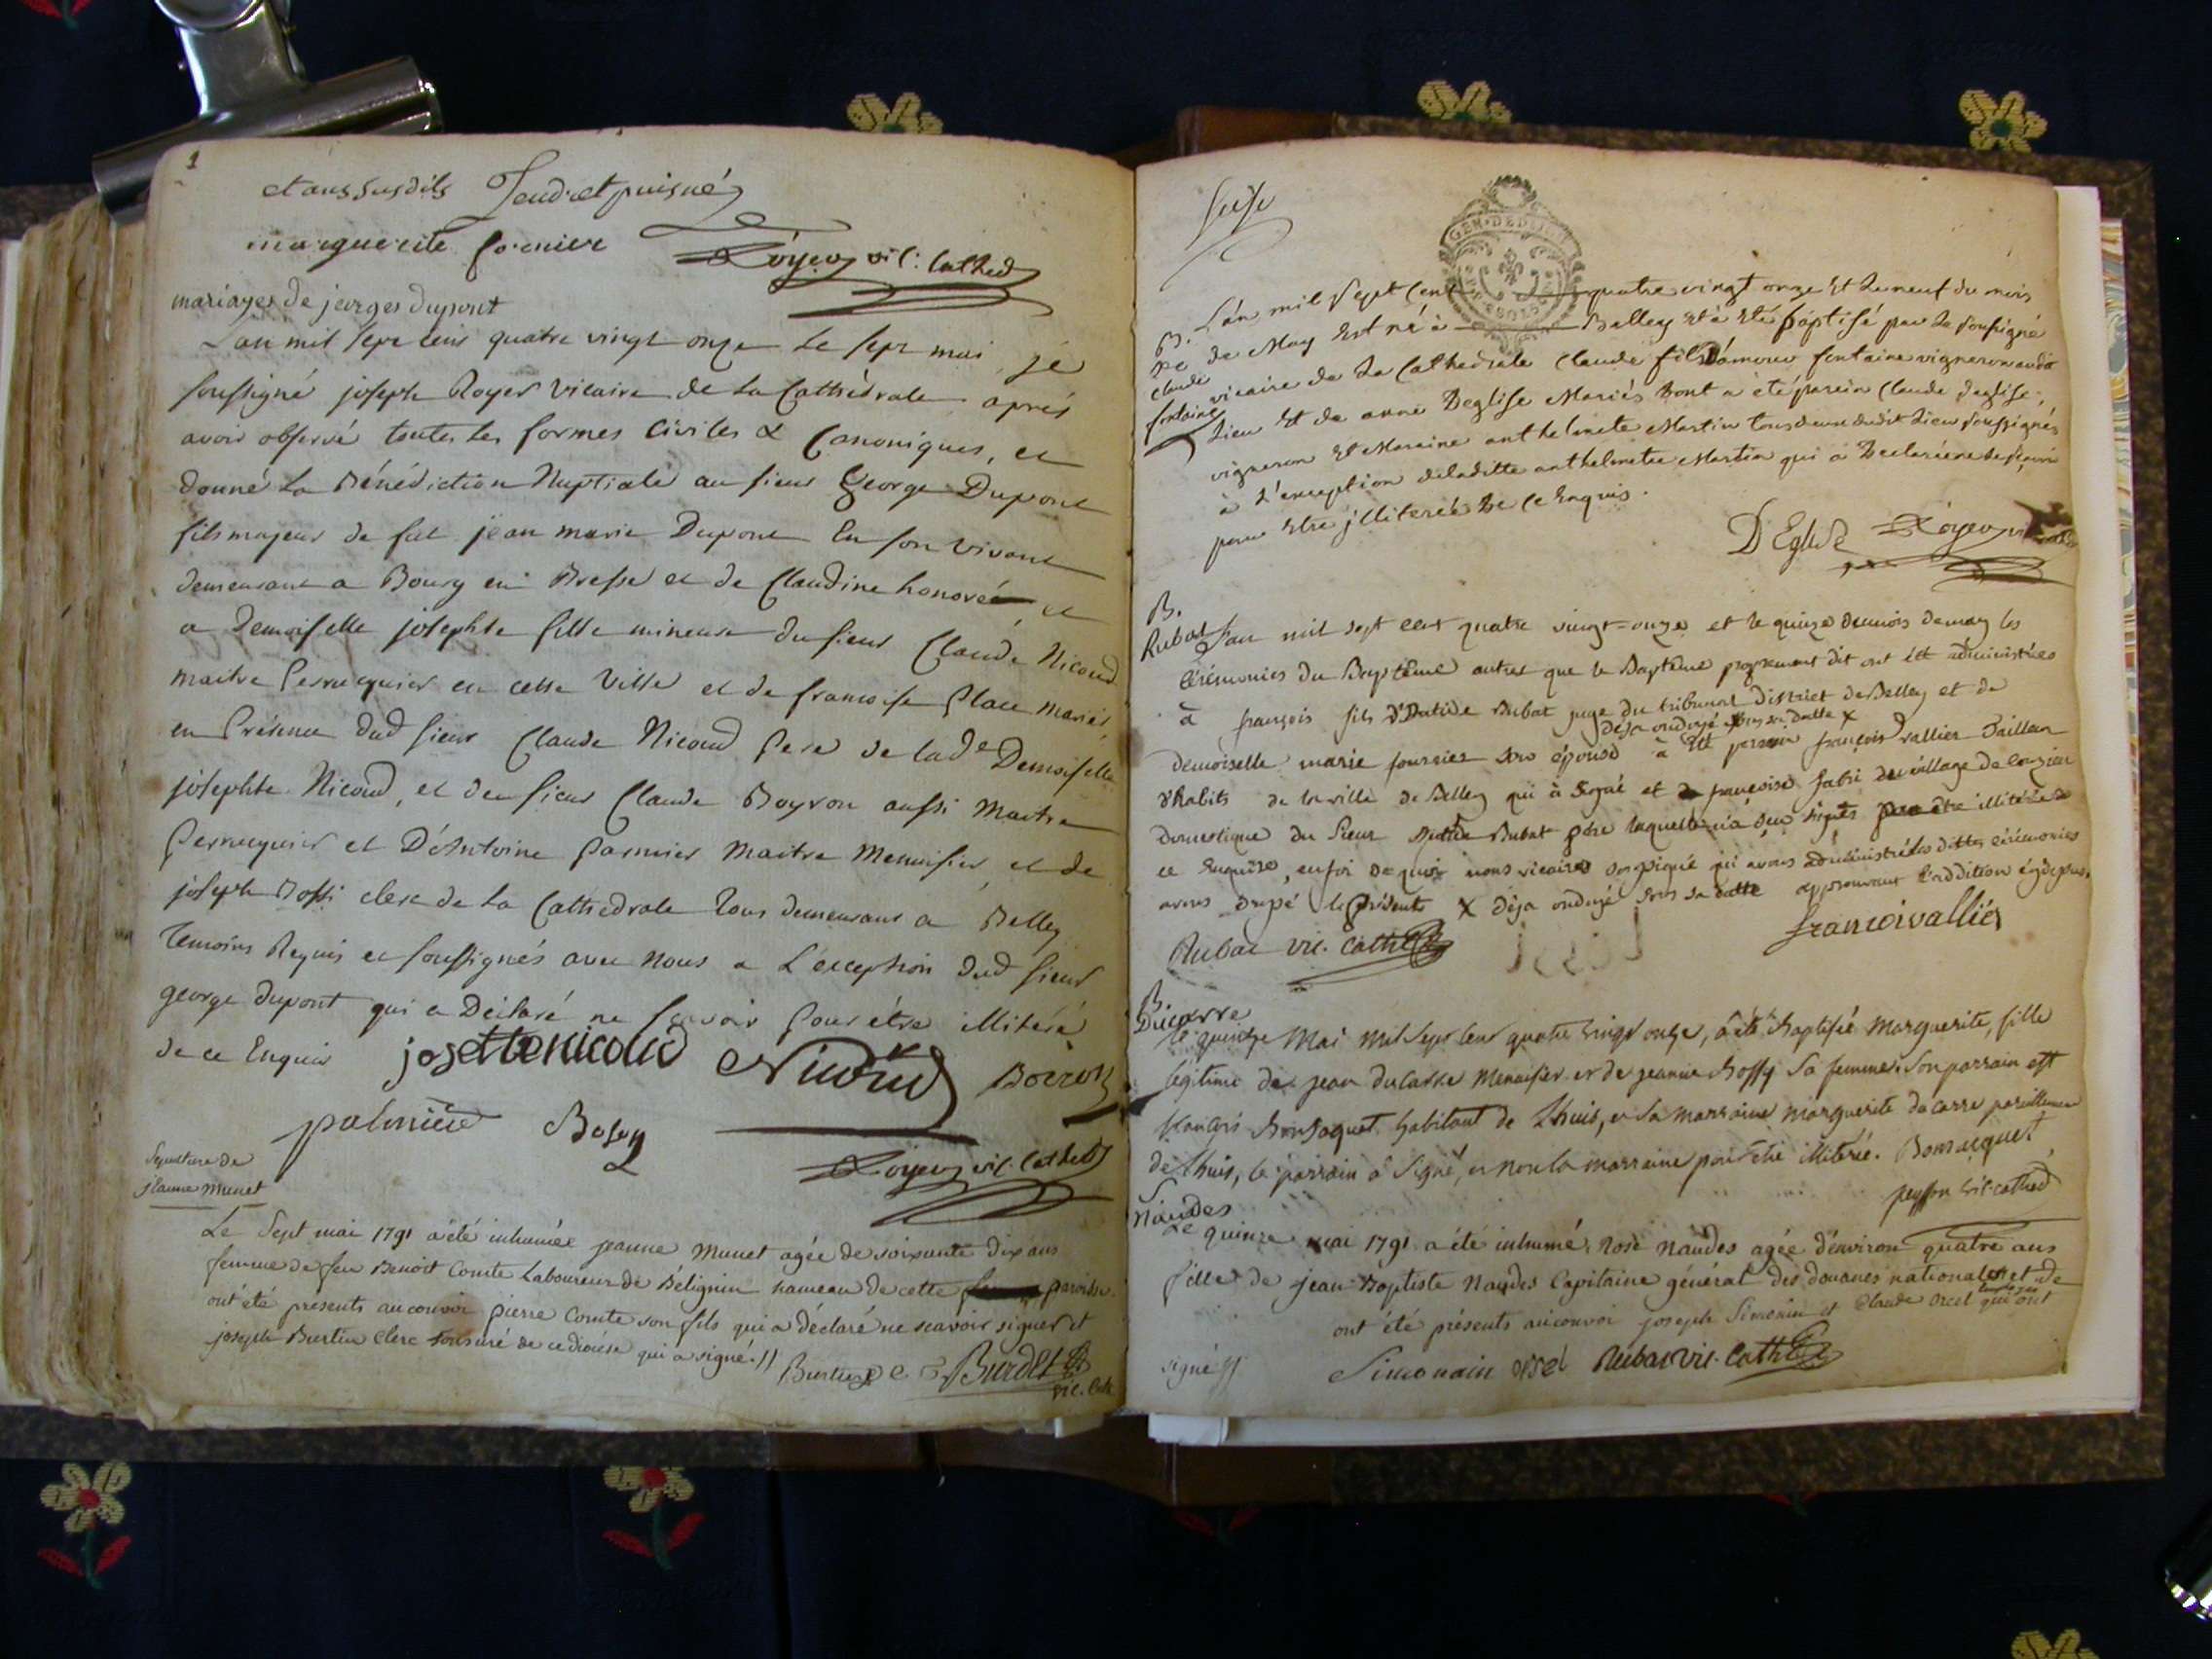 1
et aussusdits
marguerite fornier Royer vic: Cathed
mariages de jeorges dupont
L'an mil sept cens quatre vingt onze le sept mai, je
soussigné joseph Royer vicaire de la Cathédrale après
avoir observé toutes les formes Civiles & Canoniques, et
donné la Bénédiction Nuptiale au sieur George Dupont
fils majeur de feu jean marie Dupont En son vivant
demeurant a Bourg en Bresse et de Claudine honoré et
a Demoiselle josephte fille mineure du sieur Claude Nicoud
maitre Perruquier en cette Ville et de francoise Place mariés,
en Présence dud sieur Claude Nicoud Pere de lade Demoiselle
josephte Nicoud, et deu sieur Claude Boyron aussi Maitre
Perruquier et D'Antoine Parmier Maitre Menuisier, et de
joseph Bossi clerc de la Cathédrale tous demeurant a Belley
Temoins Requis et soussignés avec nous a L'exception dud sieur
george dupont qui a Déclaré ne sçavoir Pour être illitéré
de ce Enquis josettenicoud Nicoud Boiron
palmière Bosey
Royer vic. Cathed
Sepulture de
jeanne Munet
Le Sept mai 1791 a été inhumée jeanne Munet agée de soixante dix ans
femme de feu Benoit Comte Laboureur de Bélignin hameau de cette paroisse.
ont été présents au convoi pierre Comte son fils qui a déclaré ne scavoir signer et
joseph Burtin Clerc tonsuré de ce diocèse qui a signé.// Burtin Burdet
vic. Cath
seise
GEN. DE
L'an mil sept cent quatre vingt onze et Le neuf du mois
B. de May Est né à Belley et à été baptisé par Le soussigné
claude vicaire de La Cathedrale Claude fils D'amour fontaine vigneron audit
fontaine Lieu et de anne Deglise Mariés Dont a été parein Claude Deglise,
vigneron et Mareine anthelmete Martin tous deux dudit Lieu soussignés
à L'exception deladitte anthelmette Martin qui a Declaré ne Le sçavoir
pour être jlliterée De Ce Enquis.
D'Eglise Royer
B.
Rubat L'an mil sept cent quatre vingt-onze et le quinze du mois de may les
cérémonies du Baptême autres que le Baptême proprement dit ont été administrées
à françois fils d'Ovtide Rubat juge du tribunal District de Belley et de
déja ondoyé sous sa datte X
demoiselle marie fournier son épouse à été parrain françois vallier Tailleur
d'habits de la ville de Belley qui à signé et françoise fabri du village de
domestique du sieur Rubat père laquelle n'a sçu signer pour être illitérée de
ce Enquise, en foi de quoi nous vicaire soussigné qui avons administré les dittes cérémonies
avons drapé le présent X déja ondoyé sous sa datte approuvant l'addition cy dessus.
Rubat vic. cathed francoivallier
B.
Ducarre
Le quinze Mai mil Sept cent quatre vingt onze, à été Baptisée Marguerite, fille
légitime de jean ducarre Menuisier et de jeanne Bossy Sa femme. Son parrain est
françois Bonjaquet habitant de Lhuis, et Sa marraine marguerite ducarre pareillement
de Lhuis, le parrain a Signé, et non la marraine pour être illiterée. Bonjacquet
peysson vic. cathed
S.
Naudes
Le quinze mai 1791 a été inhumé Rose Naudes agée d'environ quatre ans
fille de jean-Baptiste Naudes Capitaine général des douanes nationales et de
ont été présents au convoi joseph Simonin et Claude Orcel qui ont
signé // Simonain orsel Rubat vic. Cathed